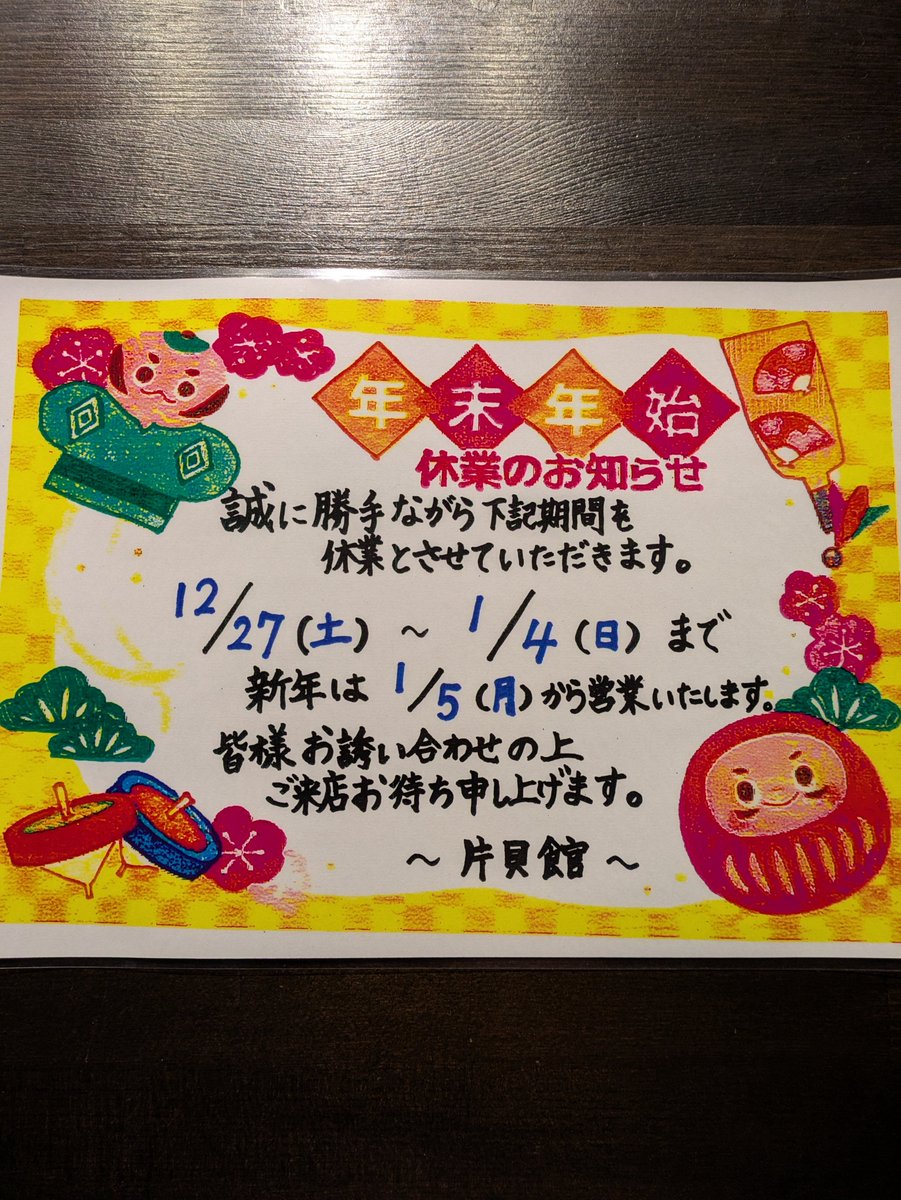 年末年始
休業のお知らせ
誠に勝手ながら下記期間も
休業とさせていただきます。
12/27(土) ~ 1/4(日) まで
新年は 1/5(月)から営業いたします。
皆様お誘い合わせの上
ご来店お待ち申し上げます。
~ 片貝館 ~